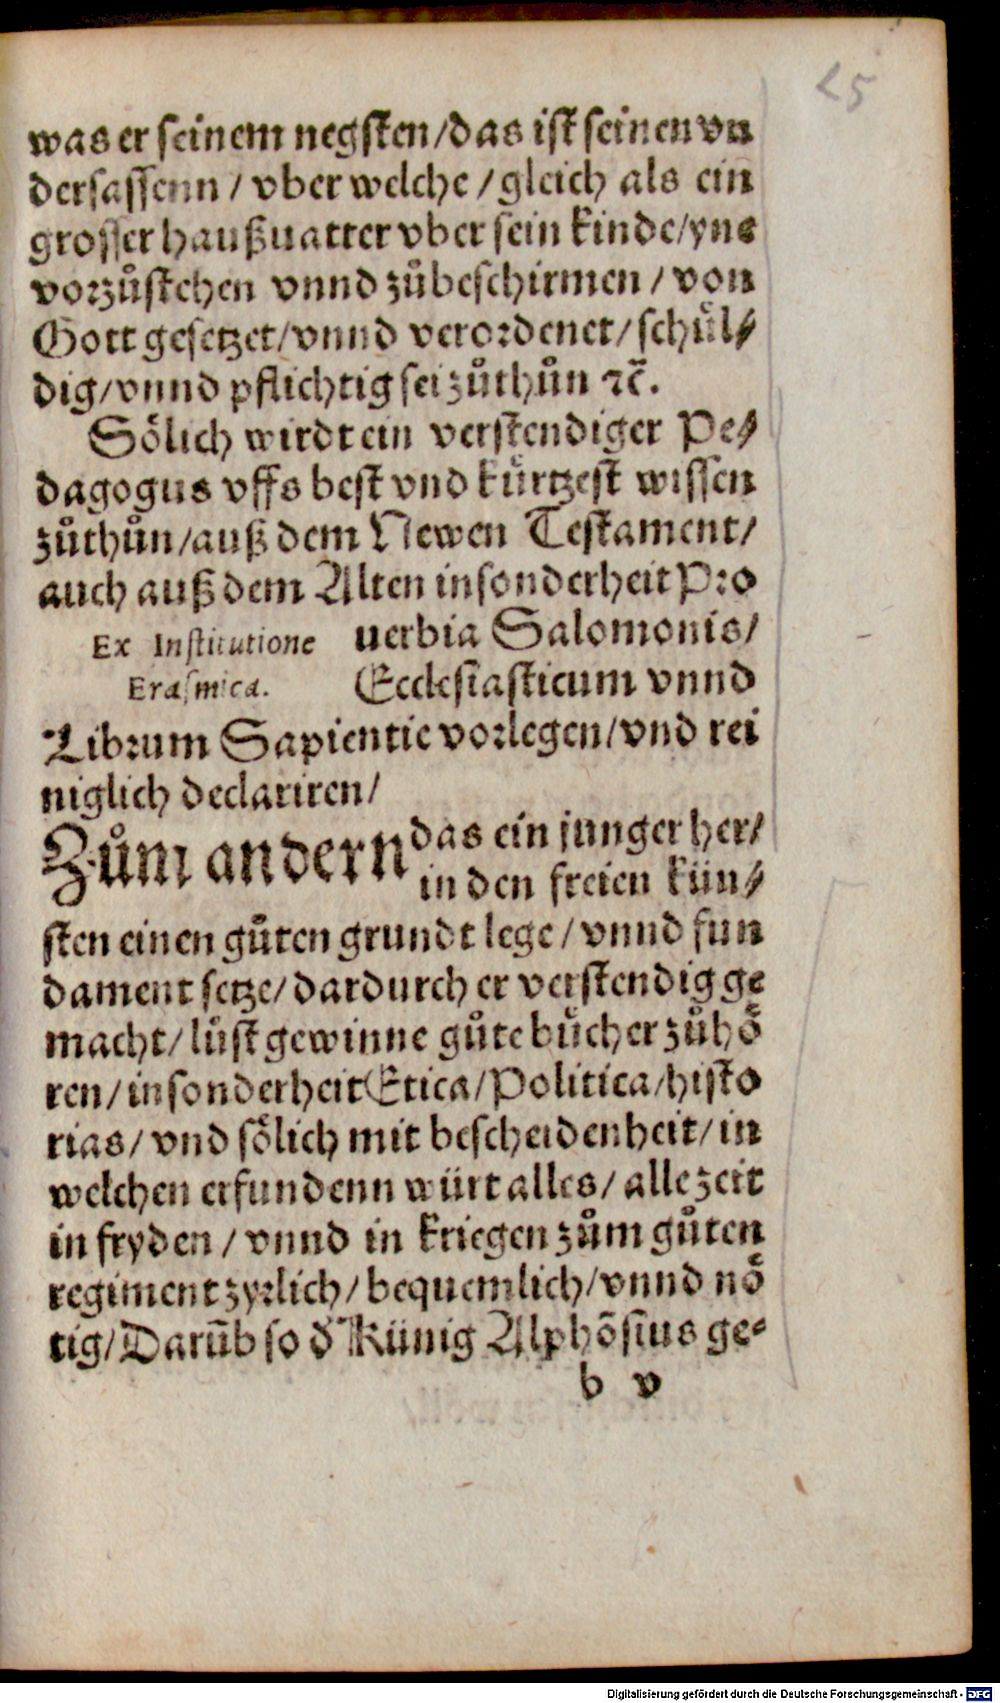 25
was er seinem negsten/das ist seinen vn
dersassenn / vber welche / gleich als ein
grosser haußuatter vber sein kinde/yne
vorzůstehen vnnd zůbeschirmen / von
Gott gesetzet/vnnd verordenet/schůl⸗
dig/vnnd pflichtig sei zůthůn ⁊c̃.
Sölich wirdt ein verstendiger Pe⸗
dagogus vffs best vnd kürtzest wissen
zůthůn/auß dem Newen Testament/
auch auß dem Alten insonderheit Pro
Ex Institutione uerbia Salomonis/
Erasmica. Ecclesiasticum vnnd
Librum Sapientie vorlegen/vnd rei
niglich declariren/
Zům andern das ein junger her/
in den freien kün⸗
sten einen gůten grundt lege / vnnd fun
dament setze/dardurch er verstendig ge
macht/lůst gewinne gůte bücher zůhö
ren/insonderheit Etica/Politica/histo
rias/vnd sölich mit bescheidenheit/in
welchen erfundenn würt alles/alle zeit
in fryden / vnnd in kriegen zům gůten
regiment zyrlich/bequemlich/vnnd nö
tig/Darũb so d' Künig Alphõsius ge⸗
b v
Digitalisierung gefördert durch die Deutsche Forschungsgemeinschaft - DFG